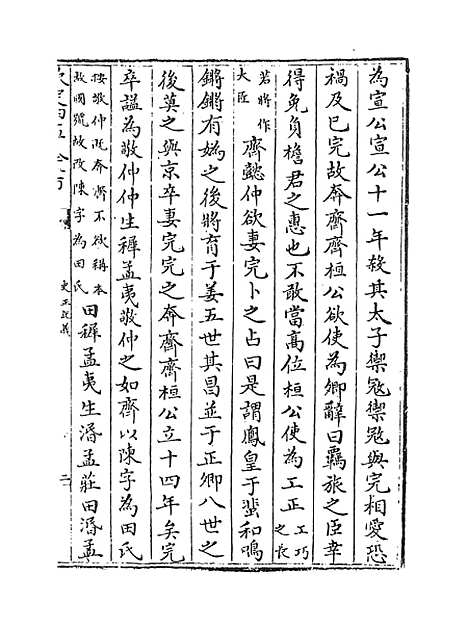 為宣公宣公十一年殺其太子禦冦禦冦與完相愛恐
禍及已完故奔齊齊桓公欲使為卿辭曰羈旅之臣幸
得免負檐君之惠也不敢當髙位桓公使為工正工巧之長
若將作大匠齊懿仲欲妻完卜之占曰是謂鳳皇于蜚和鳴
鏘鏘有媯之後將育于姜五世其昌並于正卿八世之
後莫之與京卒妻完完之奔齊齊桓公立十四年矣完
卒諡為敬仲仲生穉孟夷敬仲之如齊以陳字為田氏
按敬仲既奔齊不欲稱本故國號故改陳字為田氏田穉孟夷生湣孟莊田湣孟
史正記義
二